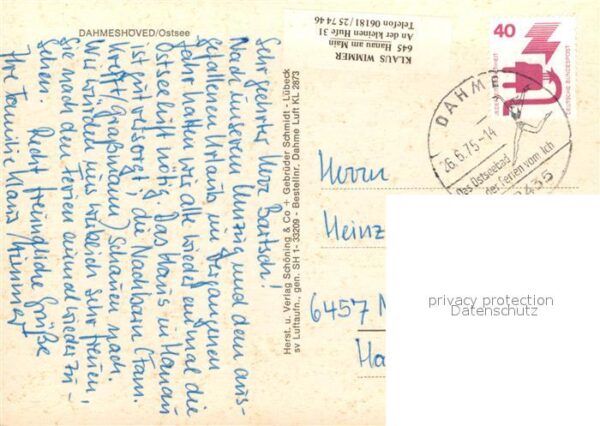 DAHMESHOVED/Ostsee
Sehr geehrter Herr Bartsch!
Nach unserem Umzug und dem aus-
gefallenen Urlaub im vergangenen
Jahr hatten wir alle wieder einmal die
Ostseeluft nötig. Das Haus in Hanau
ist gut versorgt, die Nachbarn (Fam.
Kreft/Graßmann) schauen nach.
Wir würden uns wirklich sehr freuen,
Sie nach den Ferien einmal wieder zu
sehen. Recht freundliche Grüße
Ihre Familie Klaus Wimmer
Herst. u. Verlag Schöning & Co + Gebrüder Schmidt - Lübeck
sv Luftaufn., gen. SH 1- 33209 - Bestellnr. Dahme Luft KL 2873
KLAUS WIMMER
645 Hanau am Main
An der kleinen Hufe 31
Telefon 06181 / 25 74 46
40
DEUTSCHE BUNDESPOST
DAHME
26.6.75-14
Das Ostseebad
der Ferien vom Ich
2435
Herrn
Heinz
6457 M
Ha
privacy protection
Datenschutz